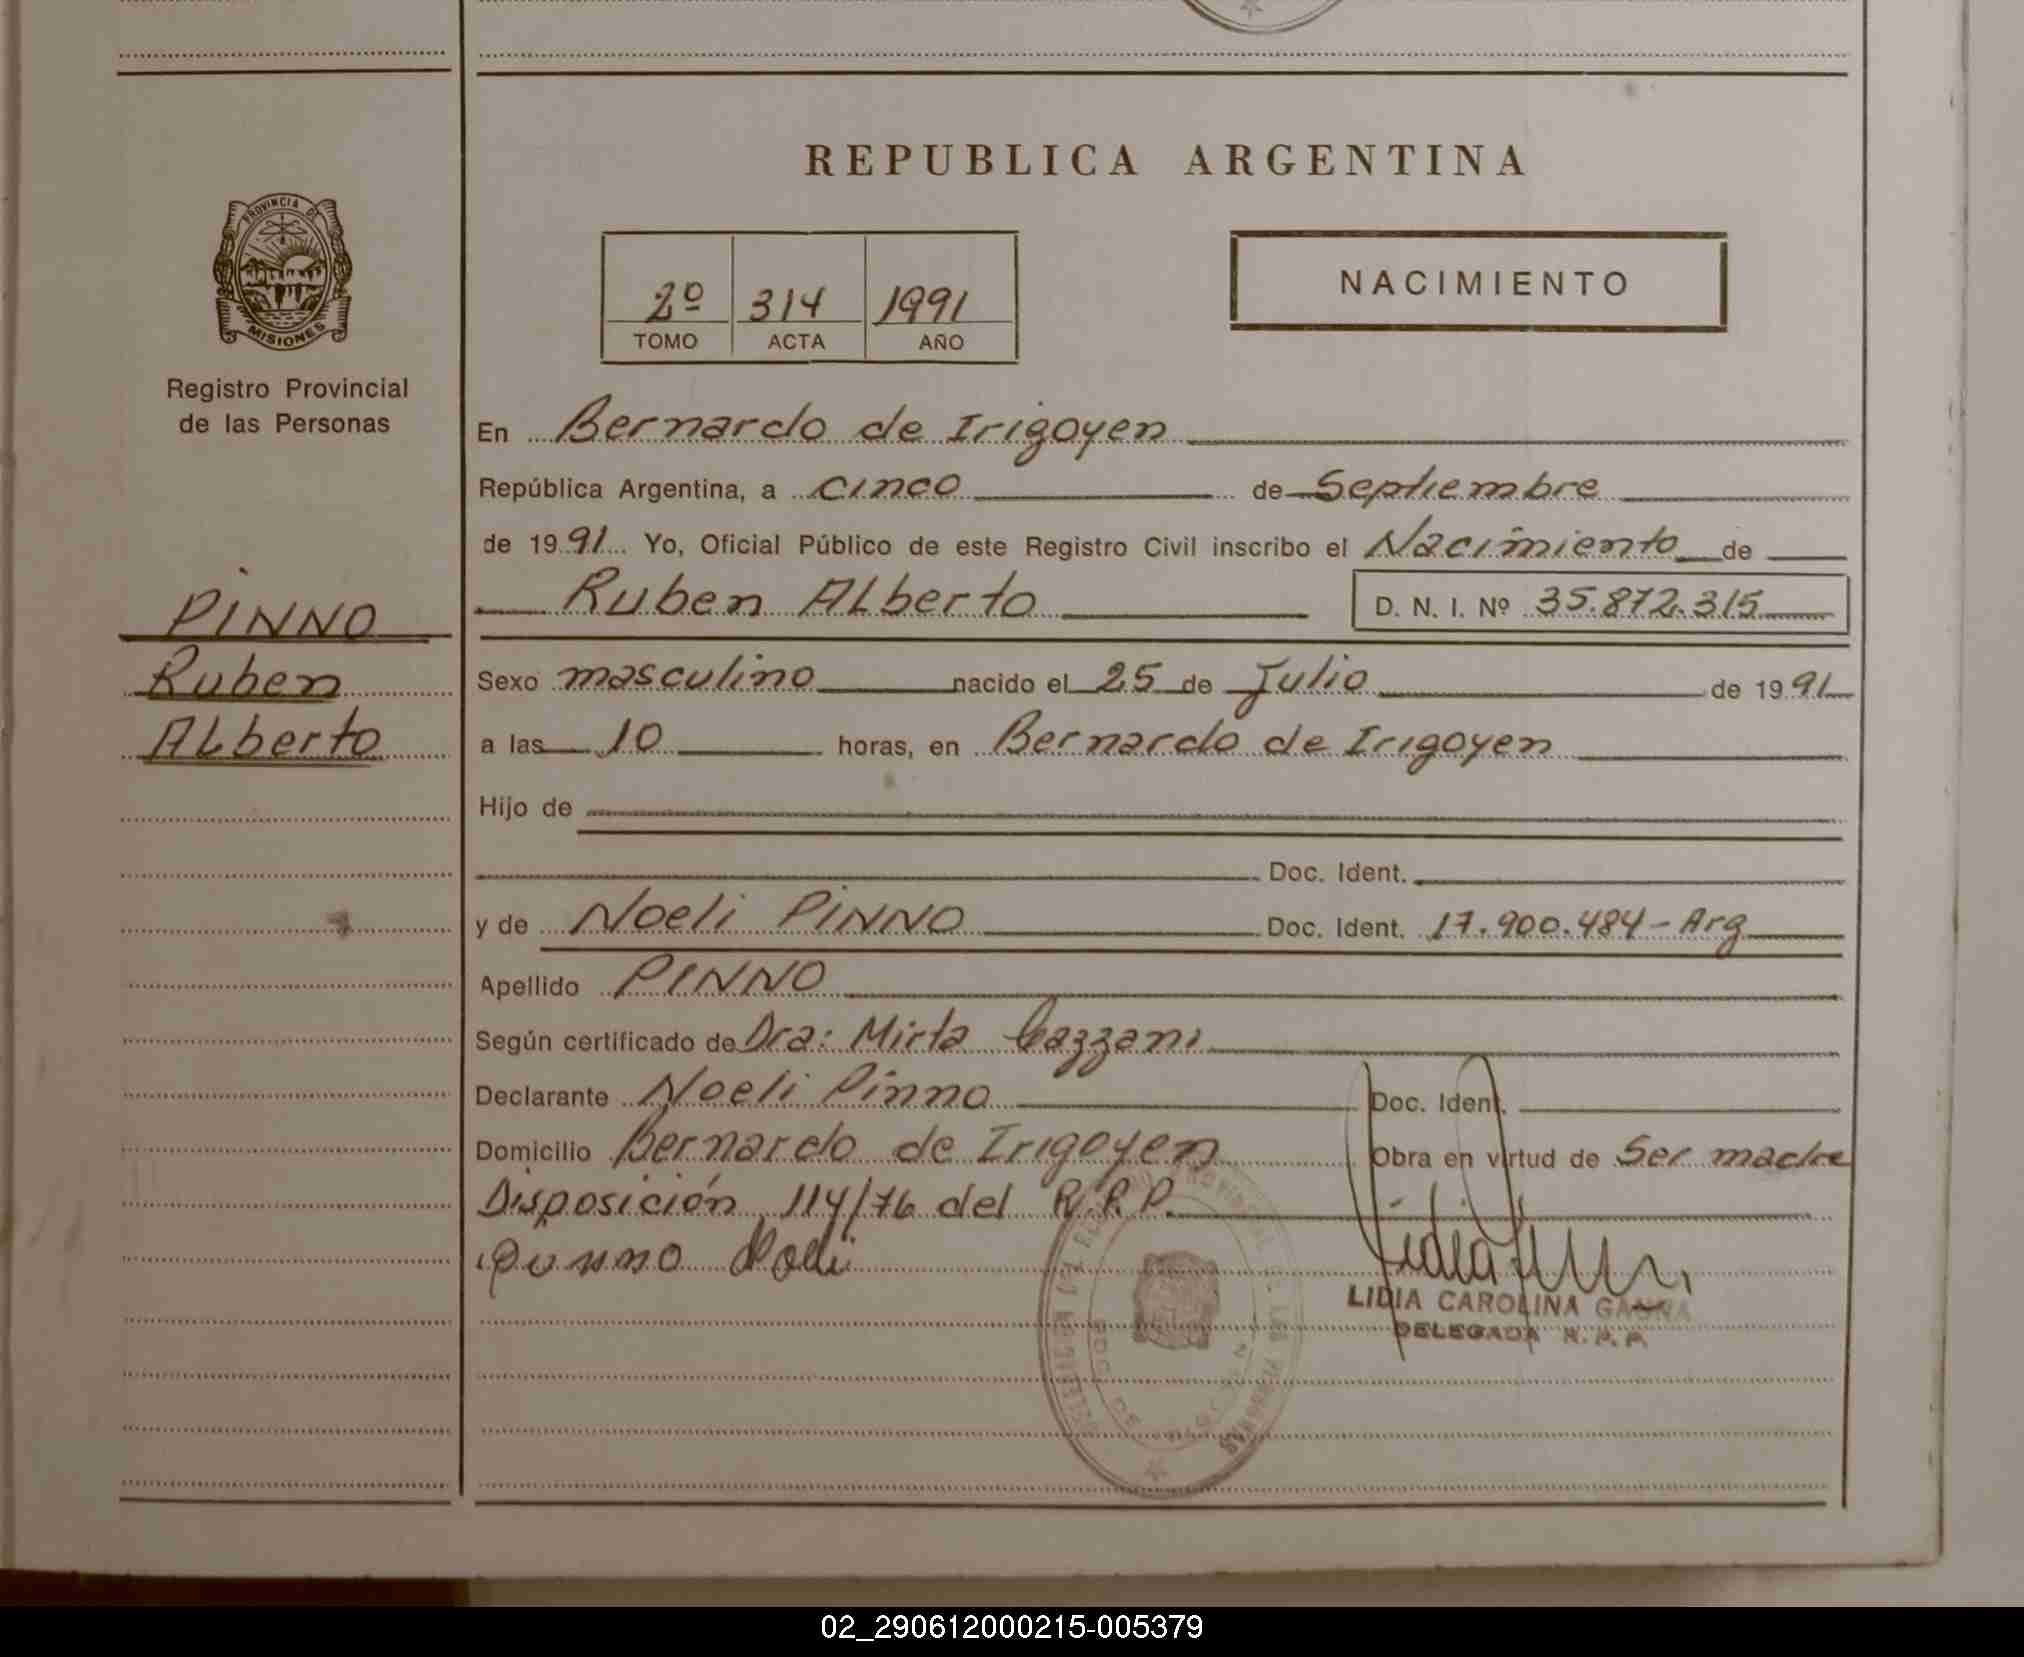 REPUBLICA ARGENTINA
PROVINCIA DE
MISIONES
Registro Provincial
de las Personas
2º 314 1991
TOMO ACTA AÑO
NACIMIENTO
PINNO
Ruben
Alberto
En Bernardo de Irigoyen
República Argentina, a cinco de Septiembre
de 1991 Yo, Oficial Público de este Registro Civil inscribo el Nacimiento de
Ruben Alberto D. N. I. Nº 35.872.315
Sexo masculino nacido el 25 de Julio de 1991
a las 10 horas, en Bernardo de Irigoyen
Hijo de
Doc. Ident.
y de Noeli PINNO Doc. Ident. 17.900.484-Arg
Apellido PINNO
Según certificado de Dra: Mirta Cazzani
Declarante Noeli Pinno Doc. Ident.
Domicilio Bernardo de Irigoyen Obra en virtud de Ser madre
Disposición 114/76 del R.P.P.
Pinno Noeli
LIDIA CAROLINA GAUNA
DELEGADA R. P. P.
02_290612000215-005379